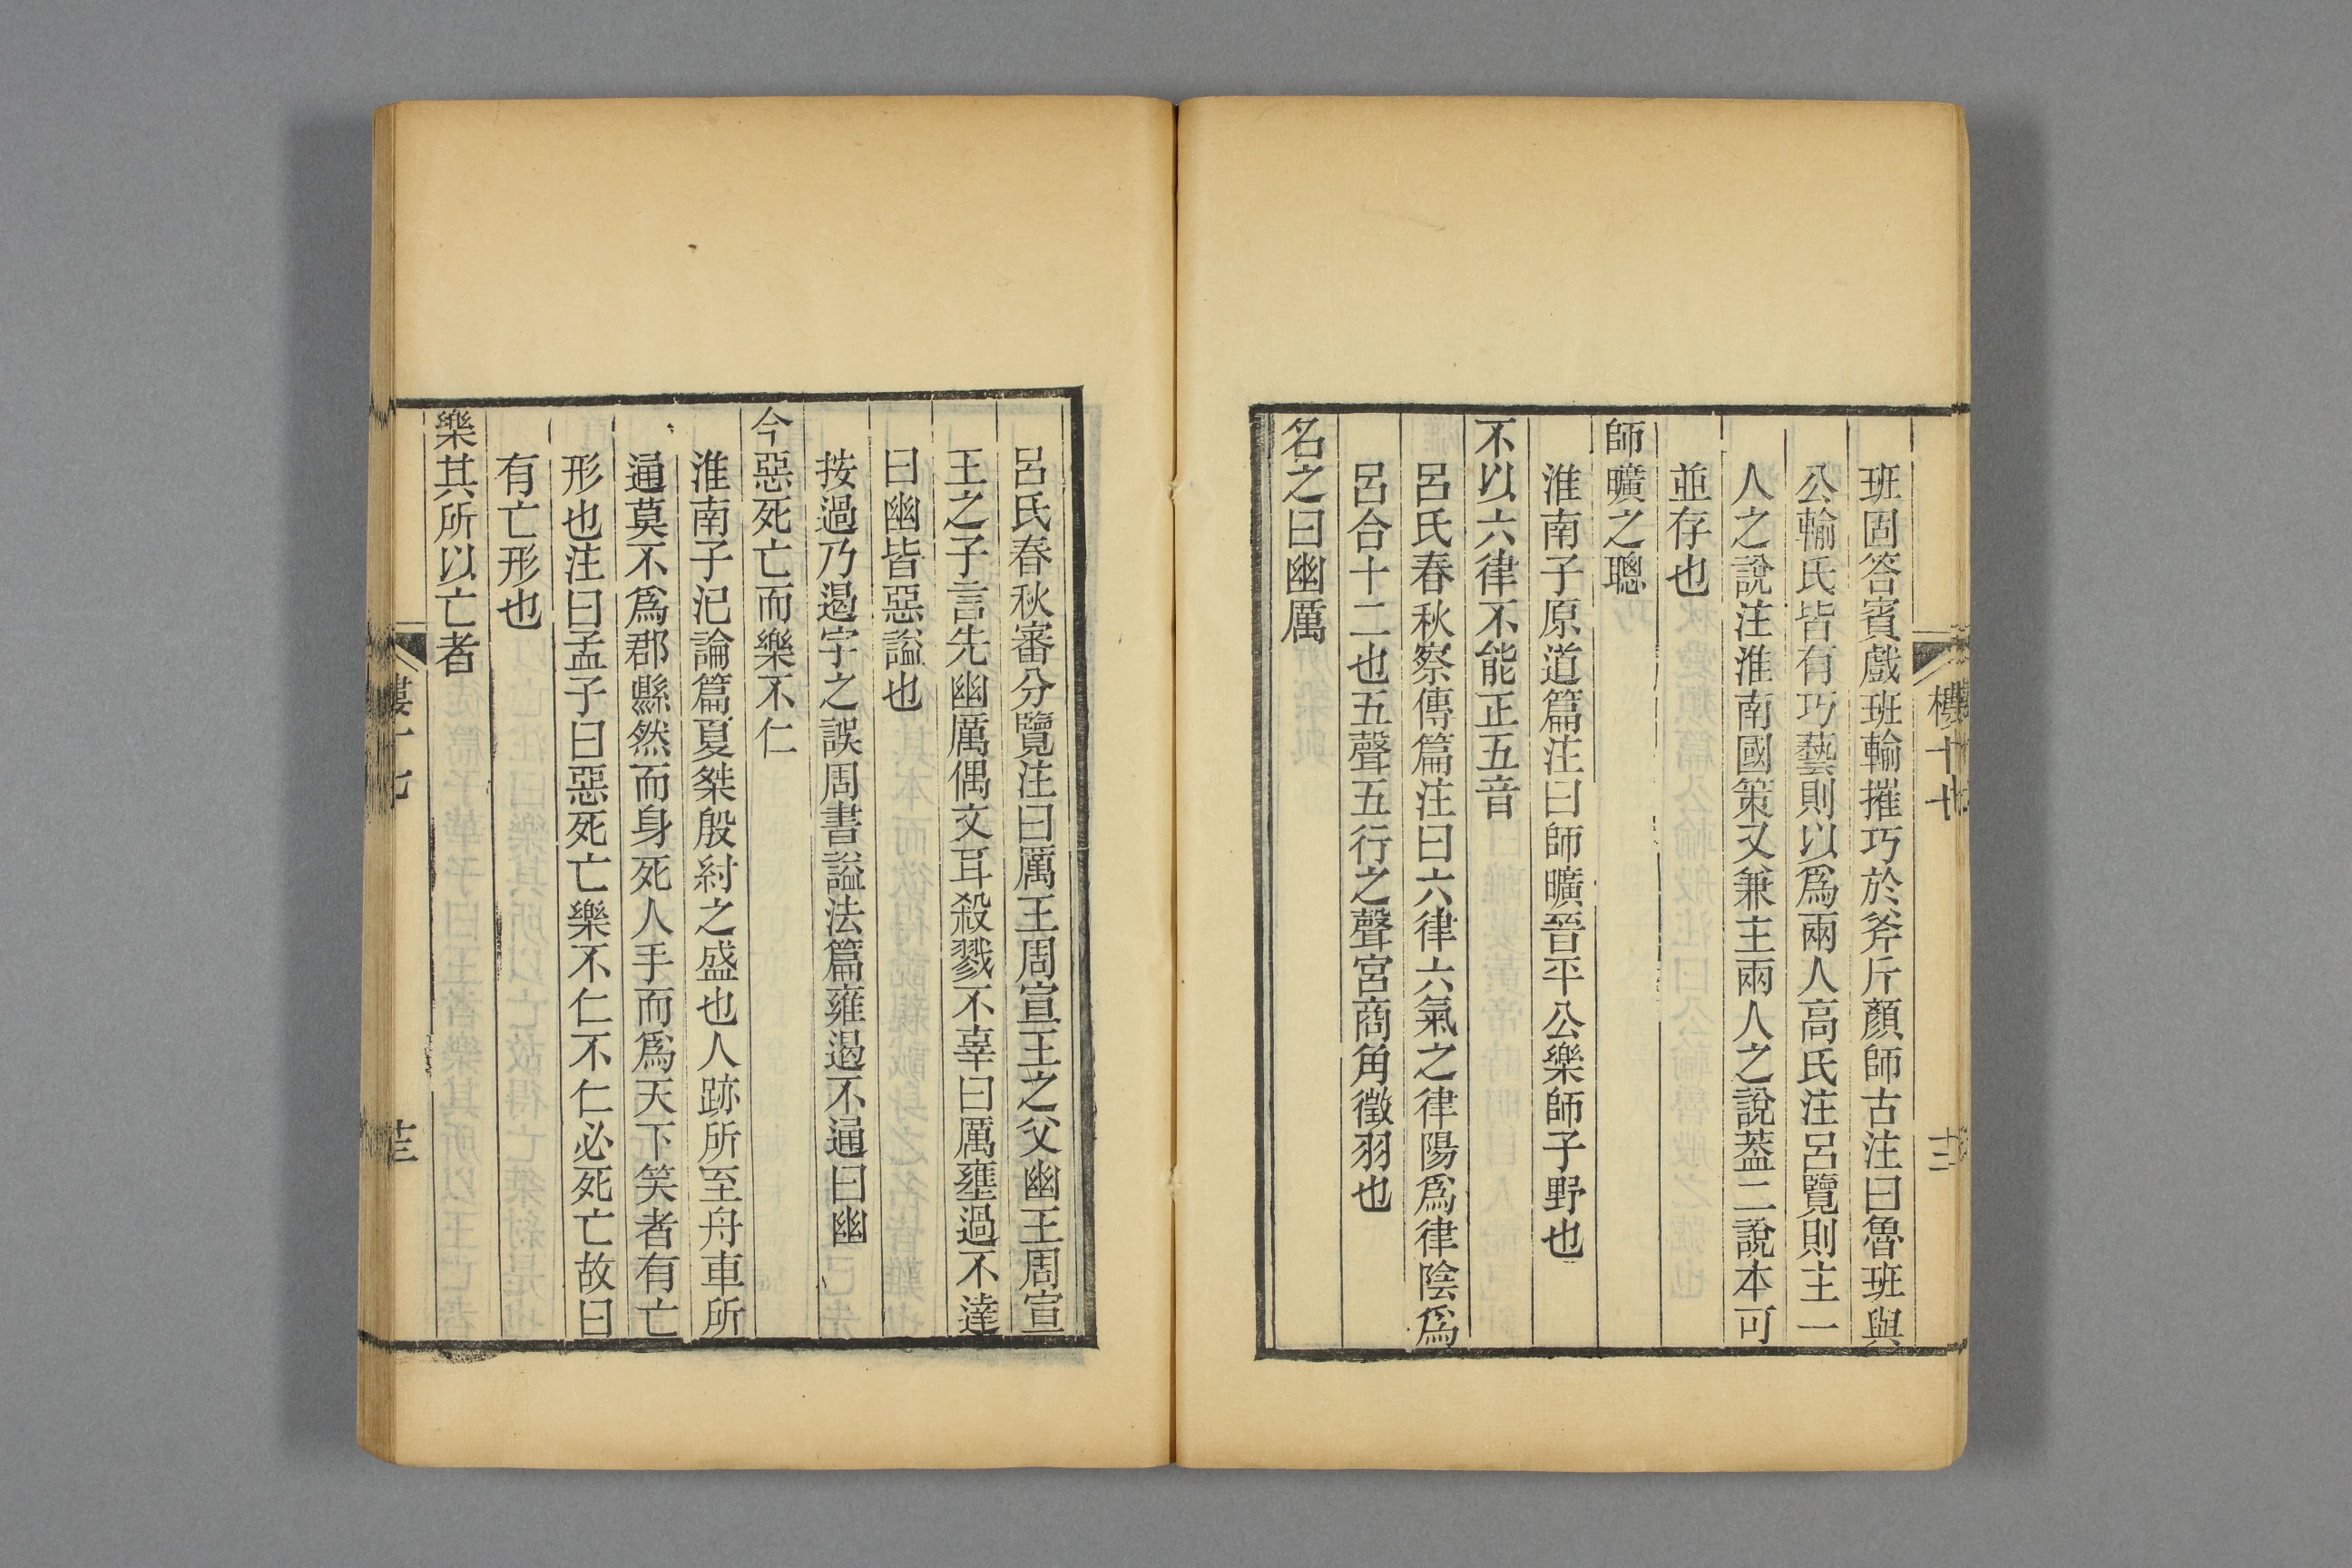 班固答賓戲班輸摧巧於斧斤顏師古注曰魯班與
公輸氏皆有巧藝則以爲兩人高氏注呂覽則主一
人之說注淮南國策又兼主兩人之說葢二說本可
並存也
師曠之聰
淮南子原道篇注曰師曠晉平公樂師子野也
不以六律不能正五音
呂氏春秋察傳篇注曰六律六氣之律陽爲律陰爲
呂合十二也五聲五行之聲宮商角徵羽也
名之曰幽厲
呂氏春秋審分覽注曰厲王周宣王之父幽王周宣
王之子言先幽厲偶文耳殺戮不辜曰厲壅過不達
曰幽皆惡謚也
按過乃遏字之誤周書謚法篇雍遏不通曰幽
今惡死亡而樂不仁
淮南子氾論篇夏桀殷紂之盛也人跡所至舟車所
通莫不爲郡縣然而身死人手而爲天下笑者有亡
形也注曰孟子曰惡死亡樂不仁不仁必死亡故曰
有亡形也
樂其所以亡者